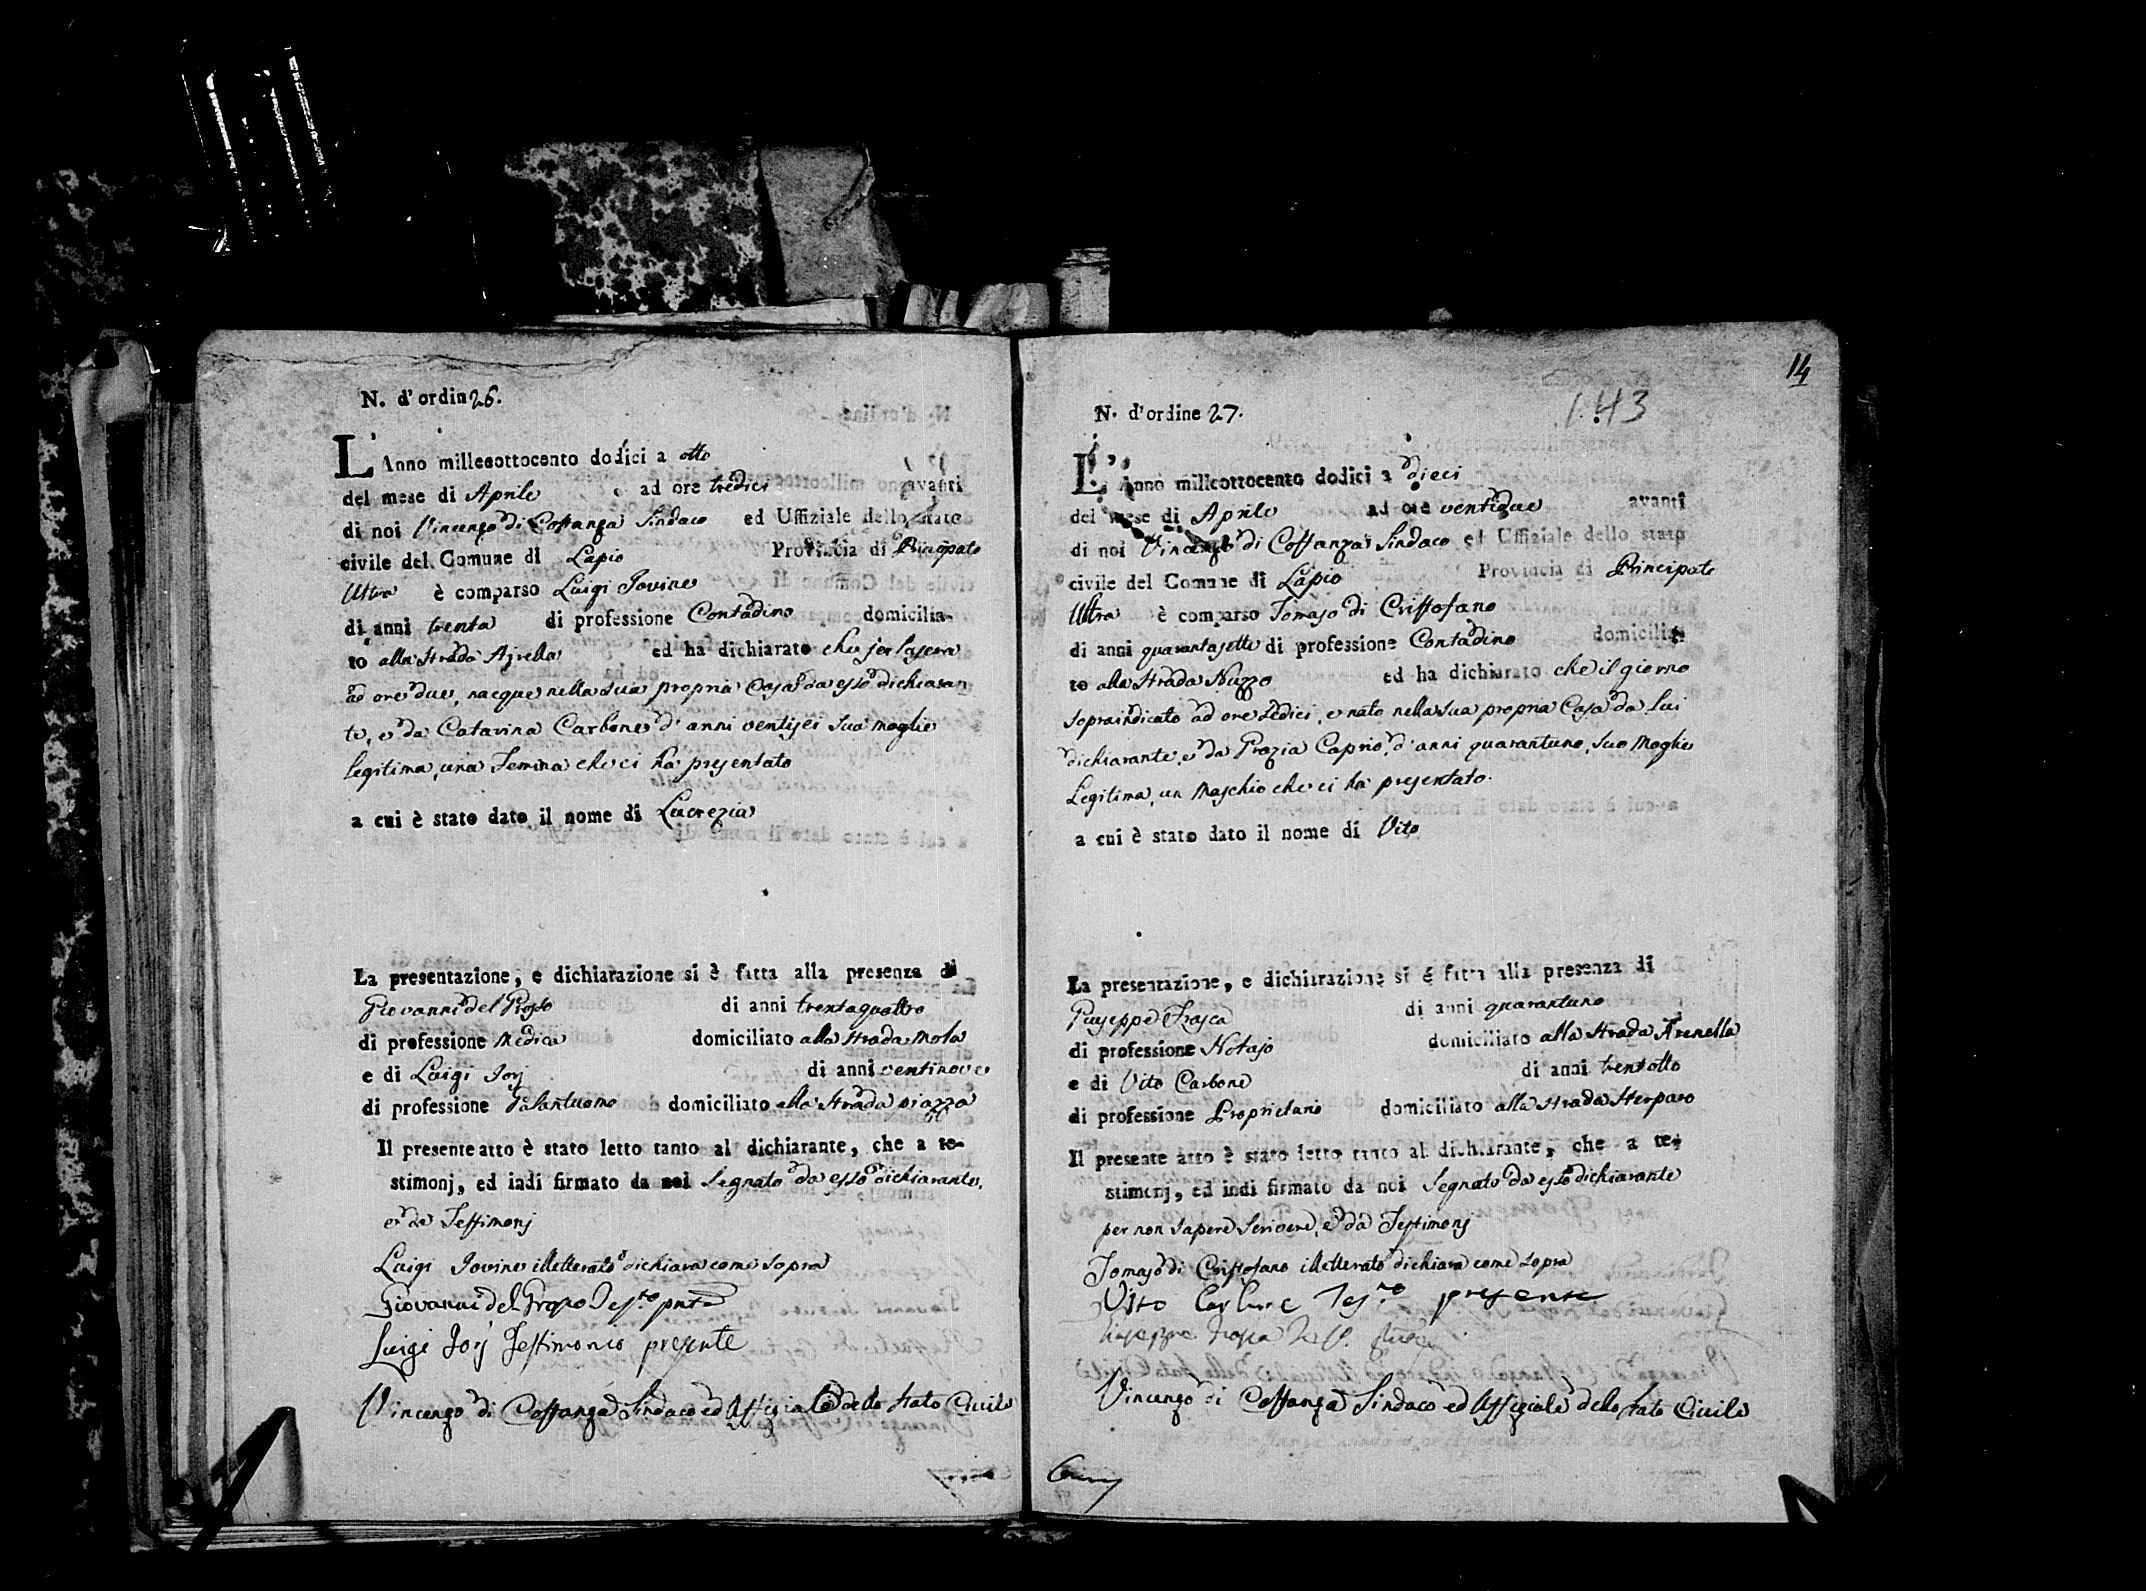 N. d'ordin 26.
L'Anno millecottocento dodici a otto
del mese di Aprile ad ore tredici avanti
di noi Vincenzo di Costanza Sindaco ed Uffiziale dello stato
civile del Comune di Lapio Provincia di Principato
Ultra è comparso Luigi Iovine
di anni trenta di professione Contadino domicilia-
to alla Strada Ajrella ed ha dichiarato che jer la sera
ad ore due, nacque nella sua propria Casa da esso dichiaran
te, e da Catarina Carbone d'anni ventisei sua moglie
legitima, una Femina che ci ha presentato
a cui è stato dato il nome di Lucrezia
La presentazione, e dichiarazione si è fatta alla presenza di
Giovanni del Grosso di anni trentaquattro
di professione Medico domiciliato alla Strada Mola
e di Luigi Iorj di anni ventinove
di professione Galantuomo domiciliato alla Strada piazza
Il presente atto è stato letto tanto al dichiarante, che a te-
stimonj, ed indi firmato da noi Segnato da esso dichiarante,
e da Testimonj
Luigi Iovine illetterato dichiara come sopra
Giovanni del Grosso Tes.to pnte
Luigi Iorj Testimonio presente
Vincenzo di Costanza Sindaco ed Uffiziale dello stato Civile
14
143
N. d'ordine 27.
L'Anno millcottocento dodici a dieci
del mese di Aprile ad ore ventidue avanti
di noi Vincenzo di Costanza Sindaco ed Uffiziale dello stato
civile del Comune di Lapio Provincia di Principato
Ultra è comparso Tomaso di Cristofano
di anni quarantasette di professione Contadino domicilia-
to alla Strada Nuzzo ed ha dichiarato che il giorno
sopraindicato ad ore sedici, e nato nella sua propria Casa da lui
dichiarante, e da Grazia Caprio d'anni quarantuno, sua Moglie
Legitima, un Maschio che ci ha presentato.
a cui è stato dato il nome di Vito
La presentazione, e dichiarazione si è fatta alla presenza di
Giuseppe Frasca di anni quarantuno
di professione Notajo domiciliato alla Strada Arenella
e di Vito Carbone di anni trentotto
di professione Proprietario domiciliato alla Strada Sterparo
Il presente atto è stato letto tanto al dichiarante, che a te-
stimonj, ed indi firmato da noi Segnato da esso dichiarante
per non sapere scrivere, e da Testimonj
Tomaso di Cristofano illetterato dichiara come sopra
Vito Carbone Tes.no presente
Giuseppe Frasca
Vincenzo di Costanza Sindaco ed Uffiziale dello stato Civile